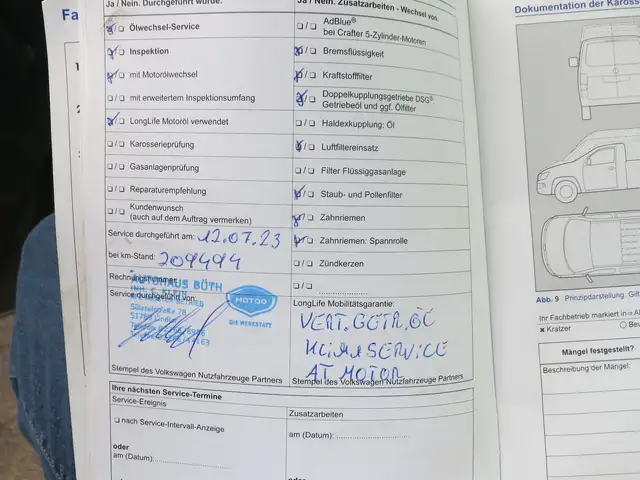 Fa
Ja / Nein. Durchgeführt wurde:
☒/☐ Ölwechsel-Service
☒/☐ Inspektion
☒/☐ mit Motorölwechsel
☐/☐ mit erweitertem Inspektionsumfang
☒/☐ LongLife Motoröl verwendet
☐/☐ Karosserieprüfung
☐/☐ Gasanlagenprüfung
☐/☐ Reparaturempfehlung
☐/☐ Kundenwunsch
(auch auf dem Auftrag vermerken)
Service durchgeführt am: 12.07.23
bei km-Stand: 209494
Rechnungsnummer:
AUTOHAUS BÜTH
Service durchgeführt von:
MOTOO
DIE WERKSTATT
Stempel des Volkswagen Nutzfahrzeuge Partners
Ja / Nein. Zusatzarbeiten - Wechsel von:
☐/☐ AdBlue®
bei Crafter 5-Zylinder-Motoren
☒/☐ Bremsflüssigkeit
☒/☐ Kraftstofffilter
☒/☐ Doppelkupplungsgetriebe DSG®:
Getriebeöl und ggf. Ölfilter
☐/☐ Haldexkupplung: Öl
☒/☐ Luftfiltereinsatz
☐/☐ Filter Flüssiggasanlage
☒/☐ Staub- und Pollenfilter
☒/☐ Zahnriemen
☒/☐ Zahnriemen: Spannrolle
☐/☐ Zündkerzen
☐/☐ ....................
LongLife Mobilitätsgarantie:
VERT.GETR.ÖL
KLIMASERVICE
AT MOTOR
Stempel des Volkswagen Nutzfahrzeuge Partners
Ihre nächsten Service-Termine
Service-Ereignis
☐ nach Service-Intervall-Anzeige
oder
am (Datum): ....................
oder
Zusatzarbeiten
am (Datum): ....................
Dokumentation der Karosse
Abb. 9 Prinzipdarstellung. Gilt
Ihr Fachbetrieb markiert in
× Kratzer
Mängel festgestellt?
Beschreibung der Mängel: